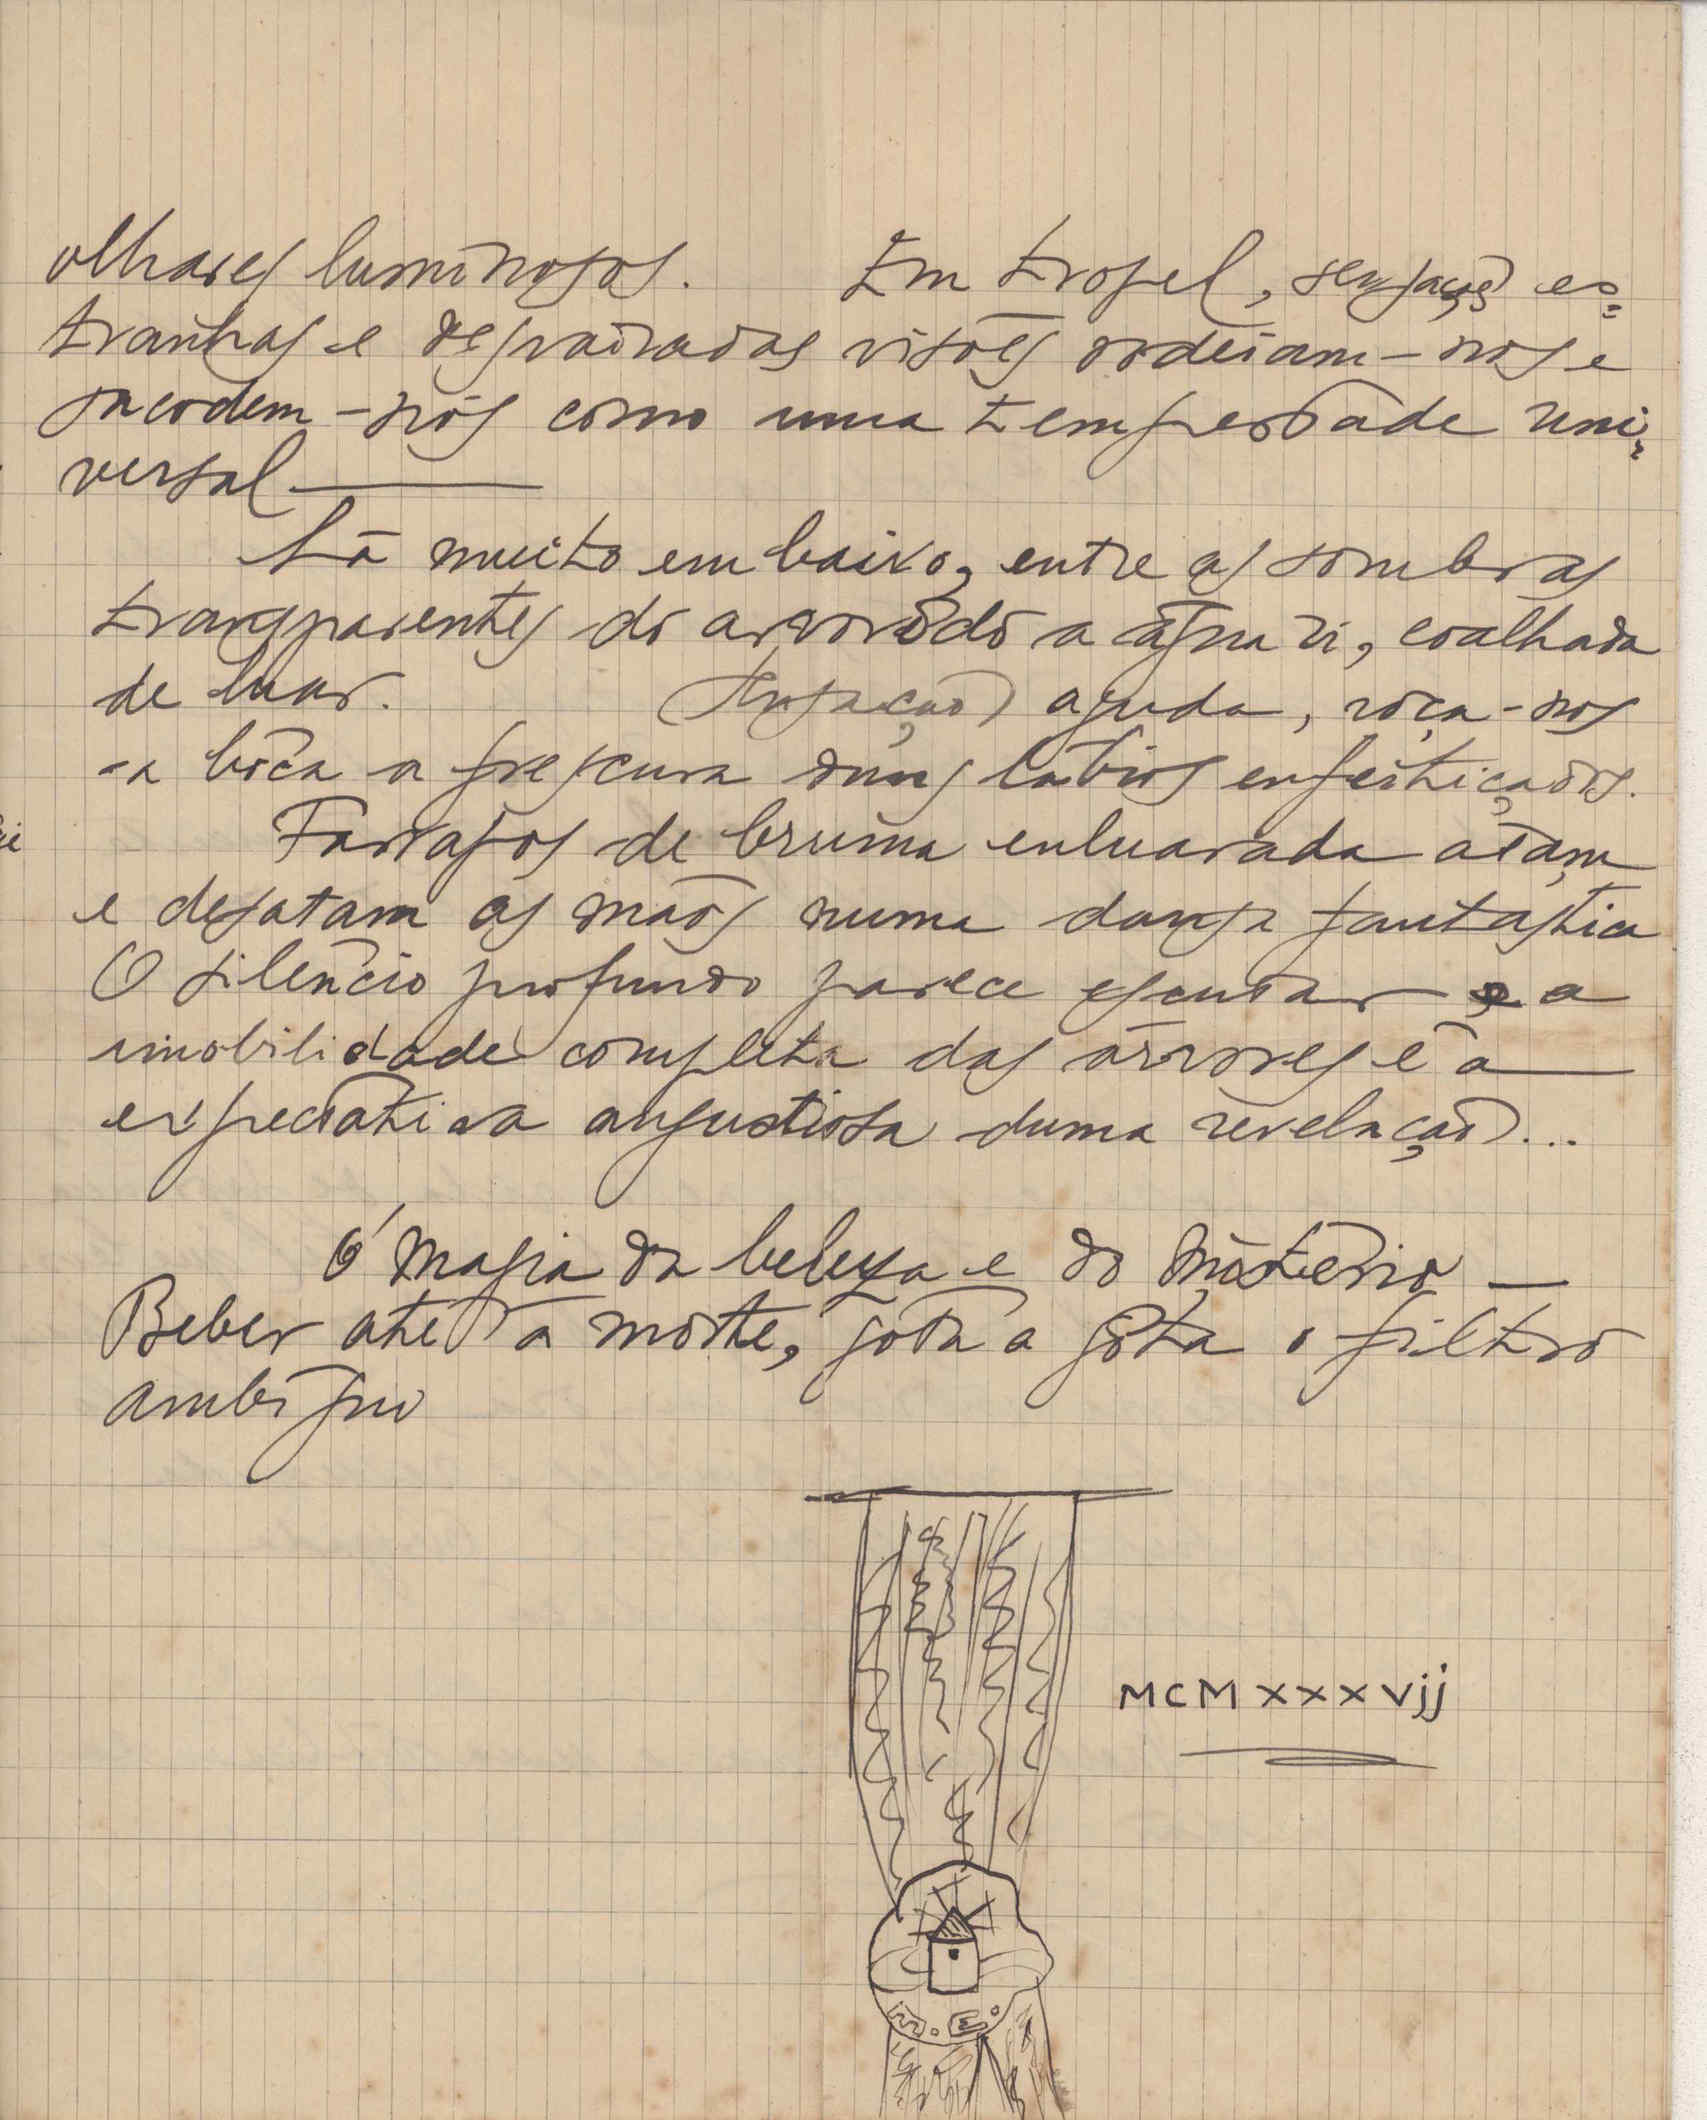 olhares luminosos. Em tropel, sensações es=
tranhas e desvairadas visões rodeiam-nos e
sacodem-nos como uma tempestade uni=
versal —
Lá muito em baixo, entre as sombras
transparentes do arvorêdo a água ri, coalhada
de luar. (Sensação) aguda, roça-nos
a bôca a frescura duns lábios enfeitiçados.
Farrapos de bruma enluarada atam
e desatam as mãos numa dansa fantástica
O silêncio profundo parece escutar e a
imobilidade completa das árvores é a
expectativa angustiosa duma revelação...
Ó magia da beleza e do mistério —
Beber até à morte, gôta a gôta o filtro
ambíguo
MCMXXXVjj